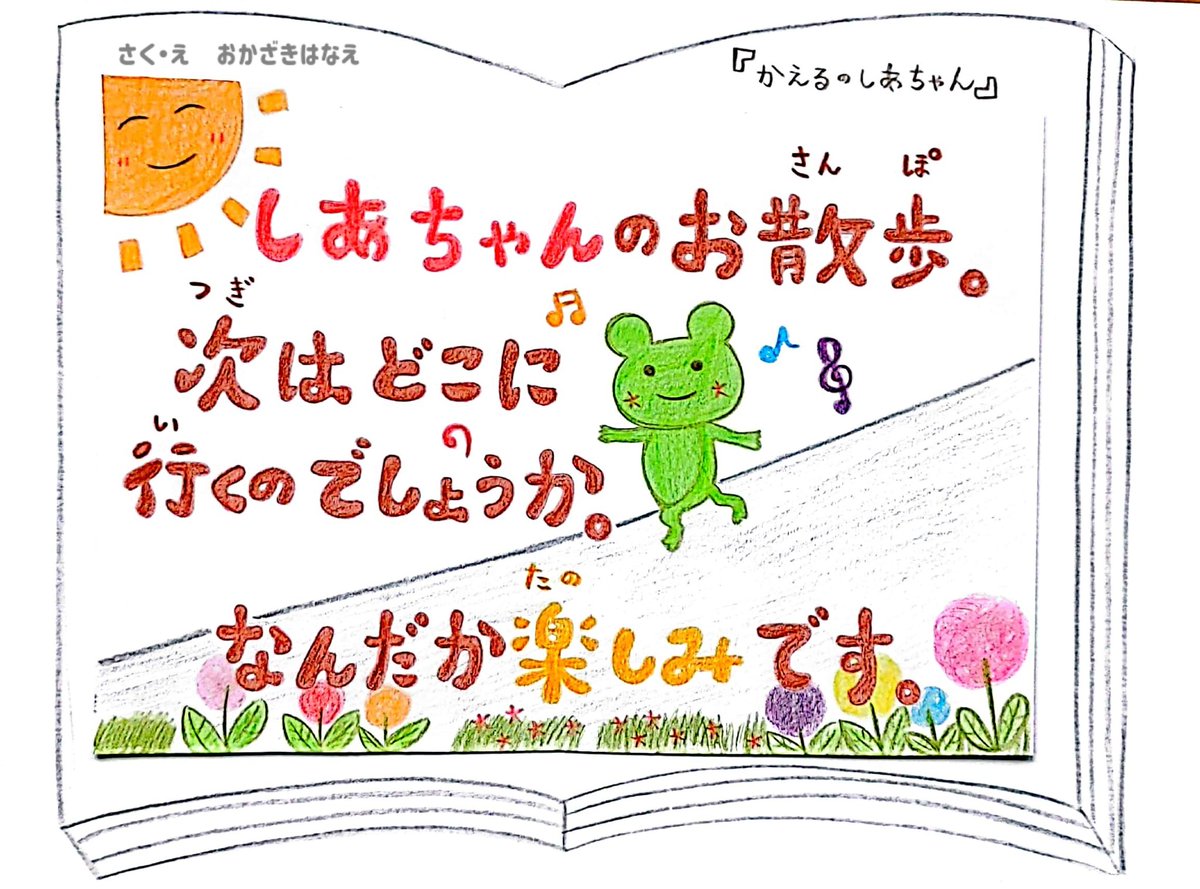 さく・え　おかざきはなえ
『かえるのしあちゃん』
さん　ぽ
しあちゃんのお散歩。
つぎ
次はどこに
い
行くのでしょうか。
たの
なんだか楽しみです。